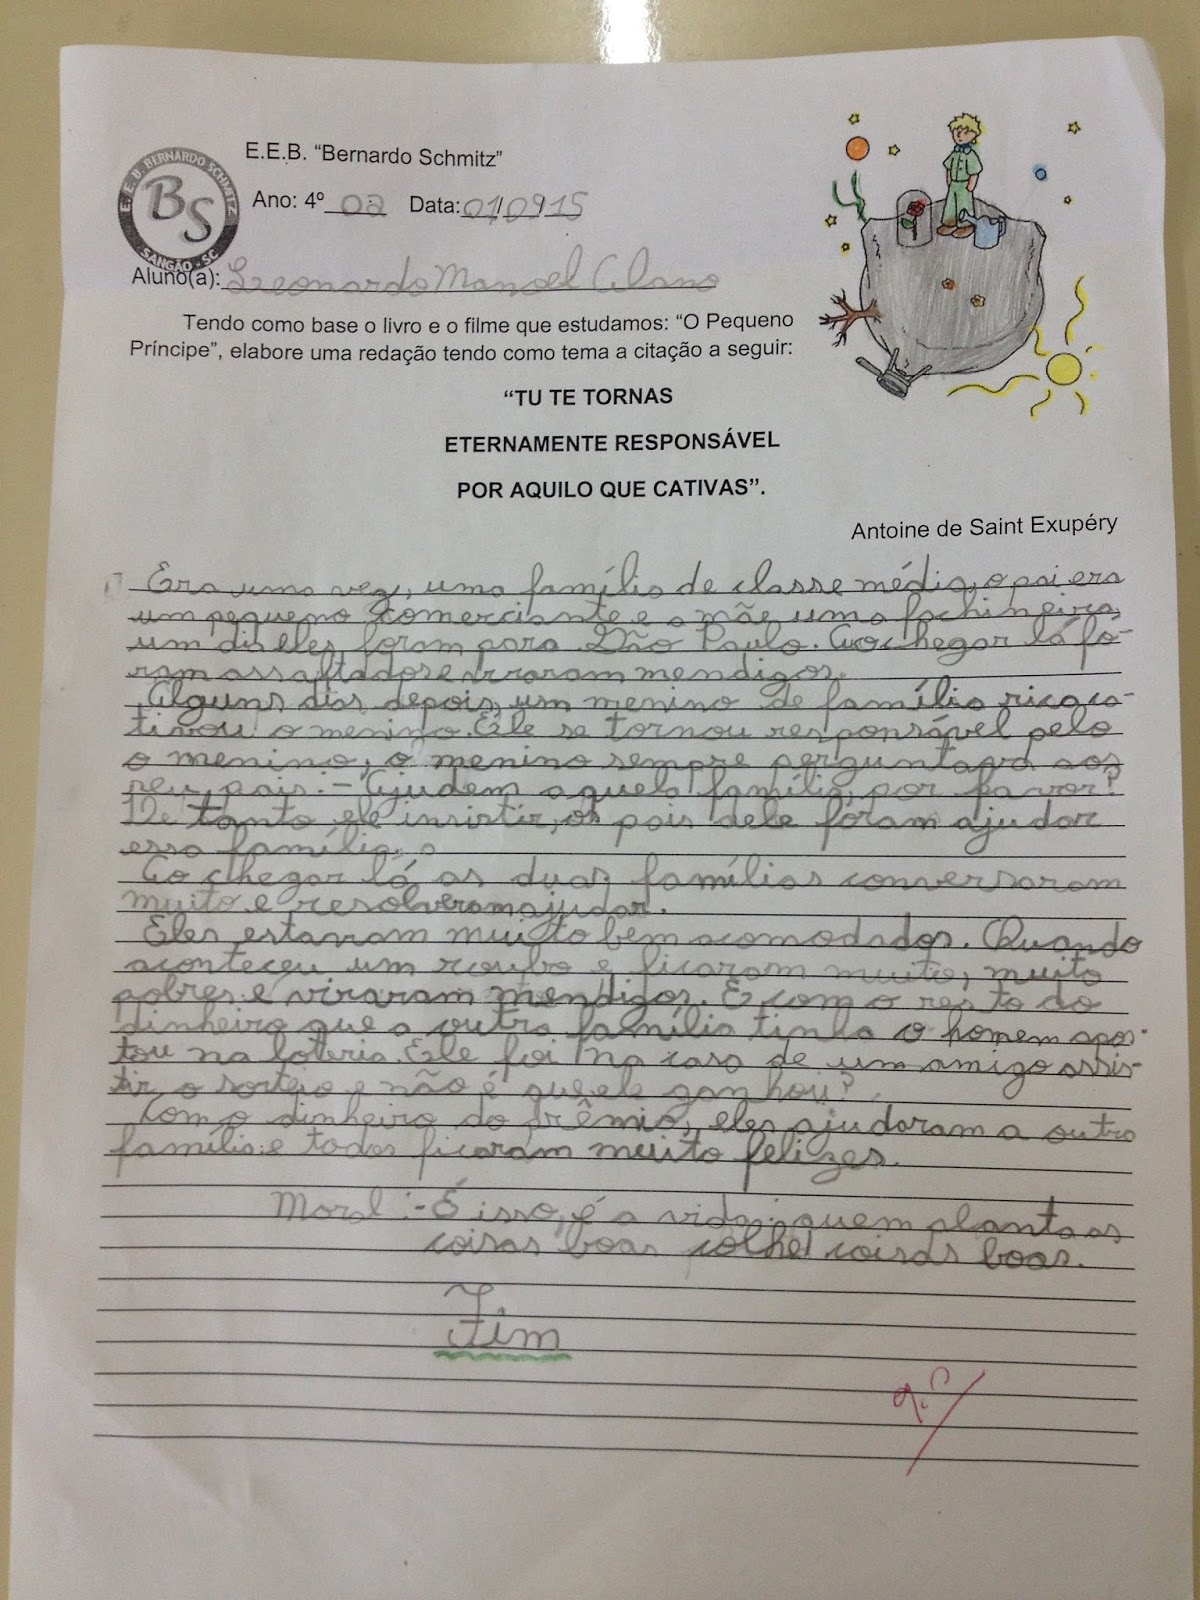 E.E.B. "Bernardo Schmitz"
E. E. B. BERNARDO SCHMITZ
BS
SANGÃO - SC
Ano: 4º 02 Data: 01/0915
Aluno(a): Leonardo Manoel Alano
Tendo como base o livro e o filme que estudamos: "O Pequeno
Príncipe", elabore uma redação tendo como tema a citação a seguir:
"TU TE TORNAS
ETERNAMENTE RESPONSÁVEL
POR AQUILO QUE CATIVAS".
Antoine de Saint Exupéry
Era uma vez, uma família de classe média, o pai era
um pequeno comerciante e a mãe uma fachineira,
um dia eles foram para São Paulo. Ao chegar lá fo-
ram assaltados e viraram mendigos.
Alguns dias depois, um menino de família rica ca-
tivou o menino. Ele se tornou responsável pelo
o menino, o menino sempre perguntava aos
seus pais: - Ajudem aquela família, por favor?
De tanto ele insistir, os pais dele foram ajudar
essa família.
Ao chegar lá as duas famílias conversaram
muito e resolveram ajudar.
Eles estavam muito bem acomodados. Quando
aconteceu um roubo e ficaram muito, muito
pobres e viraram mendigos. E com o resto do
dinheiro que a outra família tinha o homem apos-
tou na loteria. Ele foi na casa de um amigo assis-
tir o sorteio e não é que ele ganhou?
Com o dinheiro do prêmio, eles ajudaram a outra
família e todos ficaram muito felizes.
Moral: - É isso, é a vida: quem planta as
coisas boas colhe coisas boas.
Fim